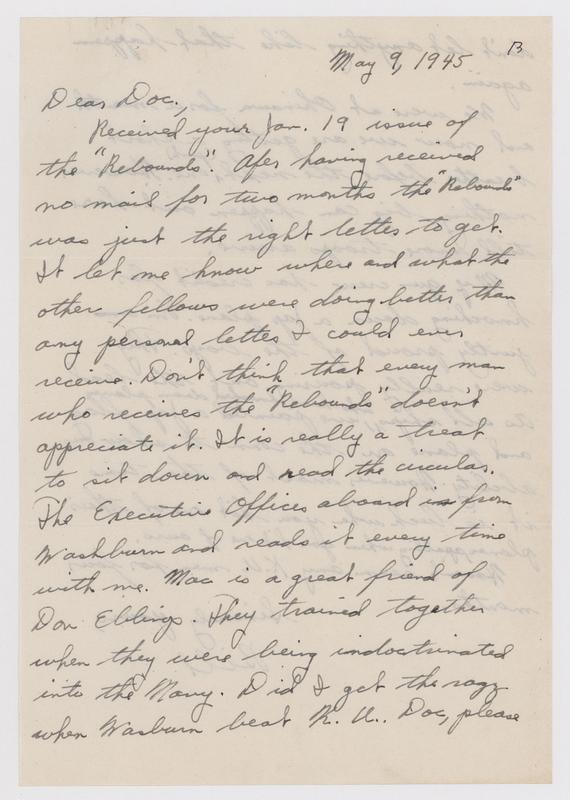 May 9, 1945
B
Dear Doc.,
Received your Jan. 19 issue of
the "Rebounds". After having received
no mail for two months the "Rebounds"
was just the right letter to get.
It let me know where and what the
other fellows were doing better than
any personal letter I could ever
receive. Don't think that every man
who receives the "Rebounds" doesn't
appreciate it. It is really a treat
to sit down and read the circular.
The Executive Officer aboard is from
Washburn and reads it every time
with me. Mac is a great friend of
Don Ebling. They trained together
when they were being indoctrinated
into the Navy. Did I get the razz
when Wasburn beat K. U.. Doc, please